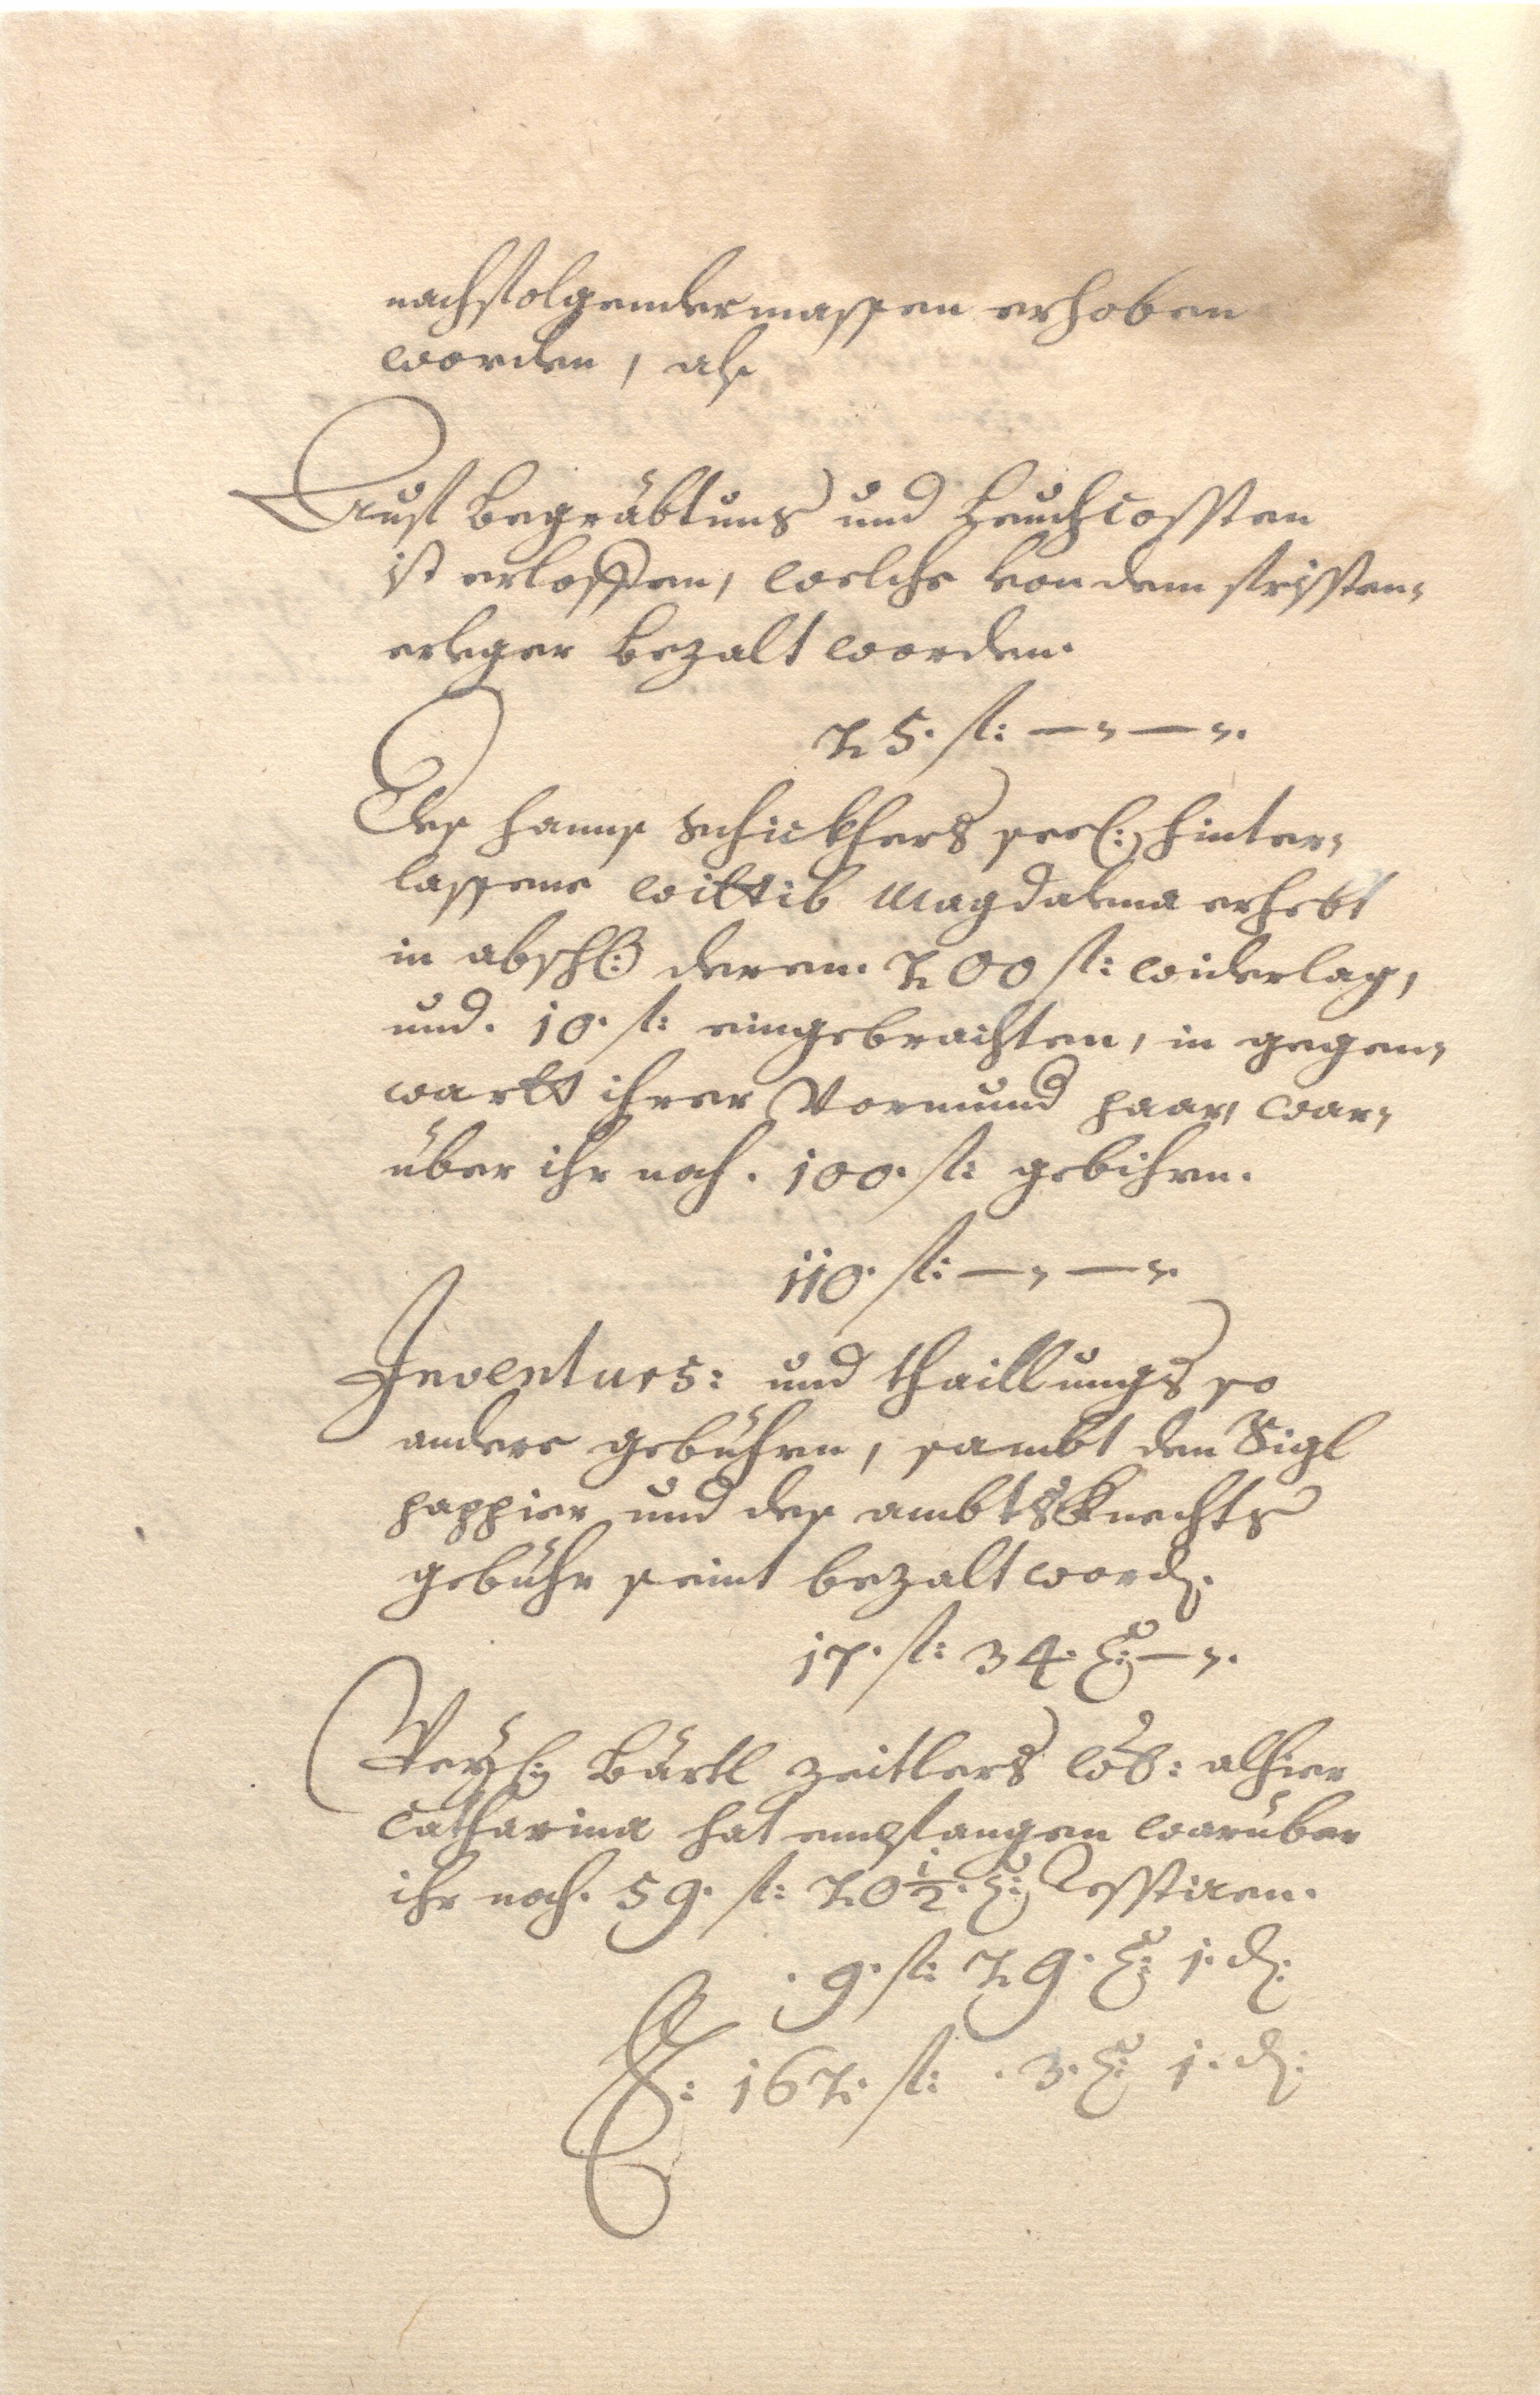 nachfolgendermassen erhoben
worden, als
Auf Begräbtnus und Leuchcossten
ist erloffen, welche von dem fristen-
erleger bezalt worden.
25. fl: — „ — „.
Des Hanns Schickhers seel: hinter-
lassene Wittib Magdalena erhebt
in abschl: deren 200 fl: widerlag,
und. 10. fl: eingebrachten, in gegen-
wartt ihrer Vormund paar, war-
über ihr noch. 100. fl: gebihren.
110. fl: — „ — „.
Inventurs: und thaillungs so
andere gebühren, sambt den Sigl
pappier und des ambtsknechts
gebühr seint bezalt word.
17. fl: 34. x: — „.
Bärtl Zeitlers alhier
Catharina hat empfangen warüber
ihr noch. 59. fl: 20 1/2. x: Resstiren.
. 9. fl: 29. x: 1. d:
S: 162. fl: . 3. x: 1. d: